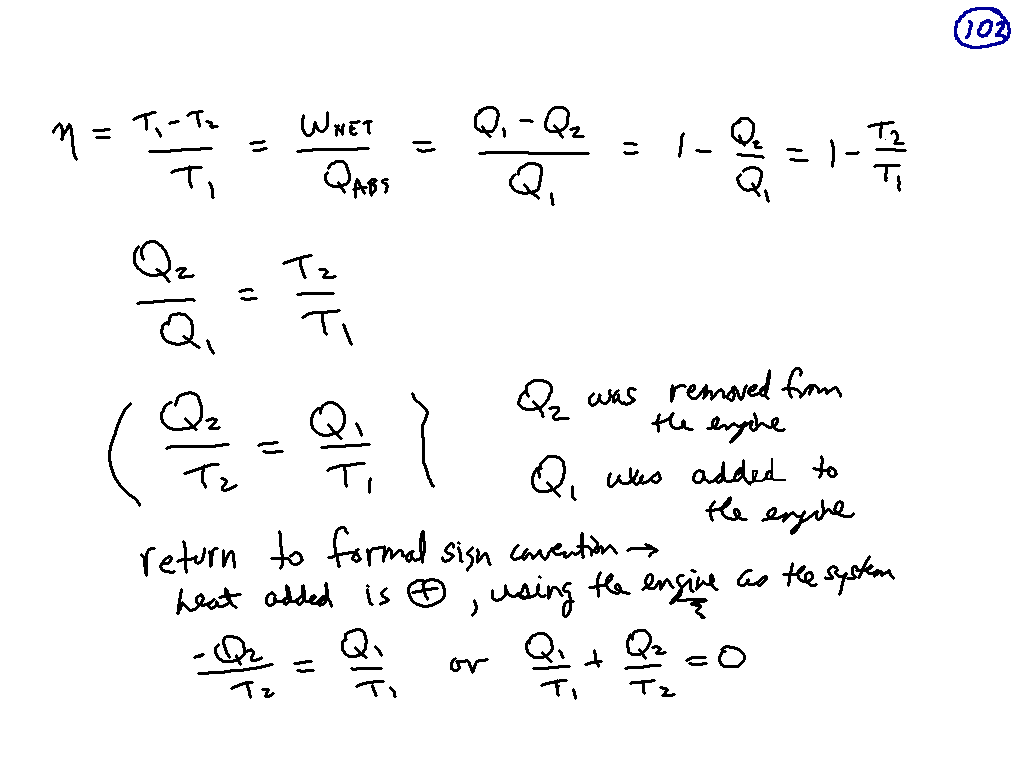 102
η = T₁-T₂ / T₁ = WNET / QABS = Q₁ - Q₂ / Q₁ = 1 - Q₂ / Q₁ = 1 - T₂ / T₁
Q₂ / Q₁ = T₂ / T₁
( Q₂ / T₂ = Q₁ / T₁ )
Q₂ was removed from
the engine
Q₁ was added to
the engine
return to formal sign convention →
heat added is ⊕, using the engine as the system
-Q₂ / T₂ = Q₁ / T₁ or Q₁ / T₁ + Q₂ / T₂ = 0